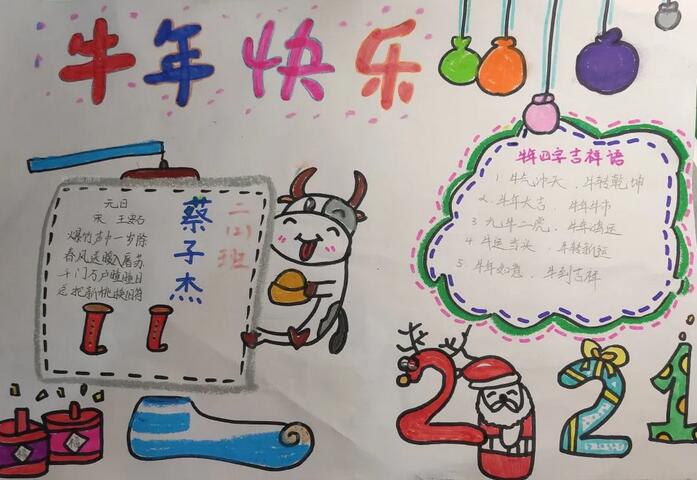 牛年快乐
元日
宋 王安石
爆竹声中一岁除
春风送暖入屠苏
千门万户曈曈日
总把新桃换旧符
蔡子杰
二(2)班
牛年四字吉祥语
1. 牛气冲天、牛转乾坤
2. 牛年大吉、牛年牛市
3. 九牛二虎、牛年鸿运
4. 牛运当头、牛转新运
5. 牛年如意、牛到吉祥
2021